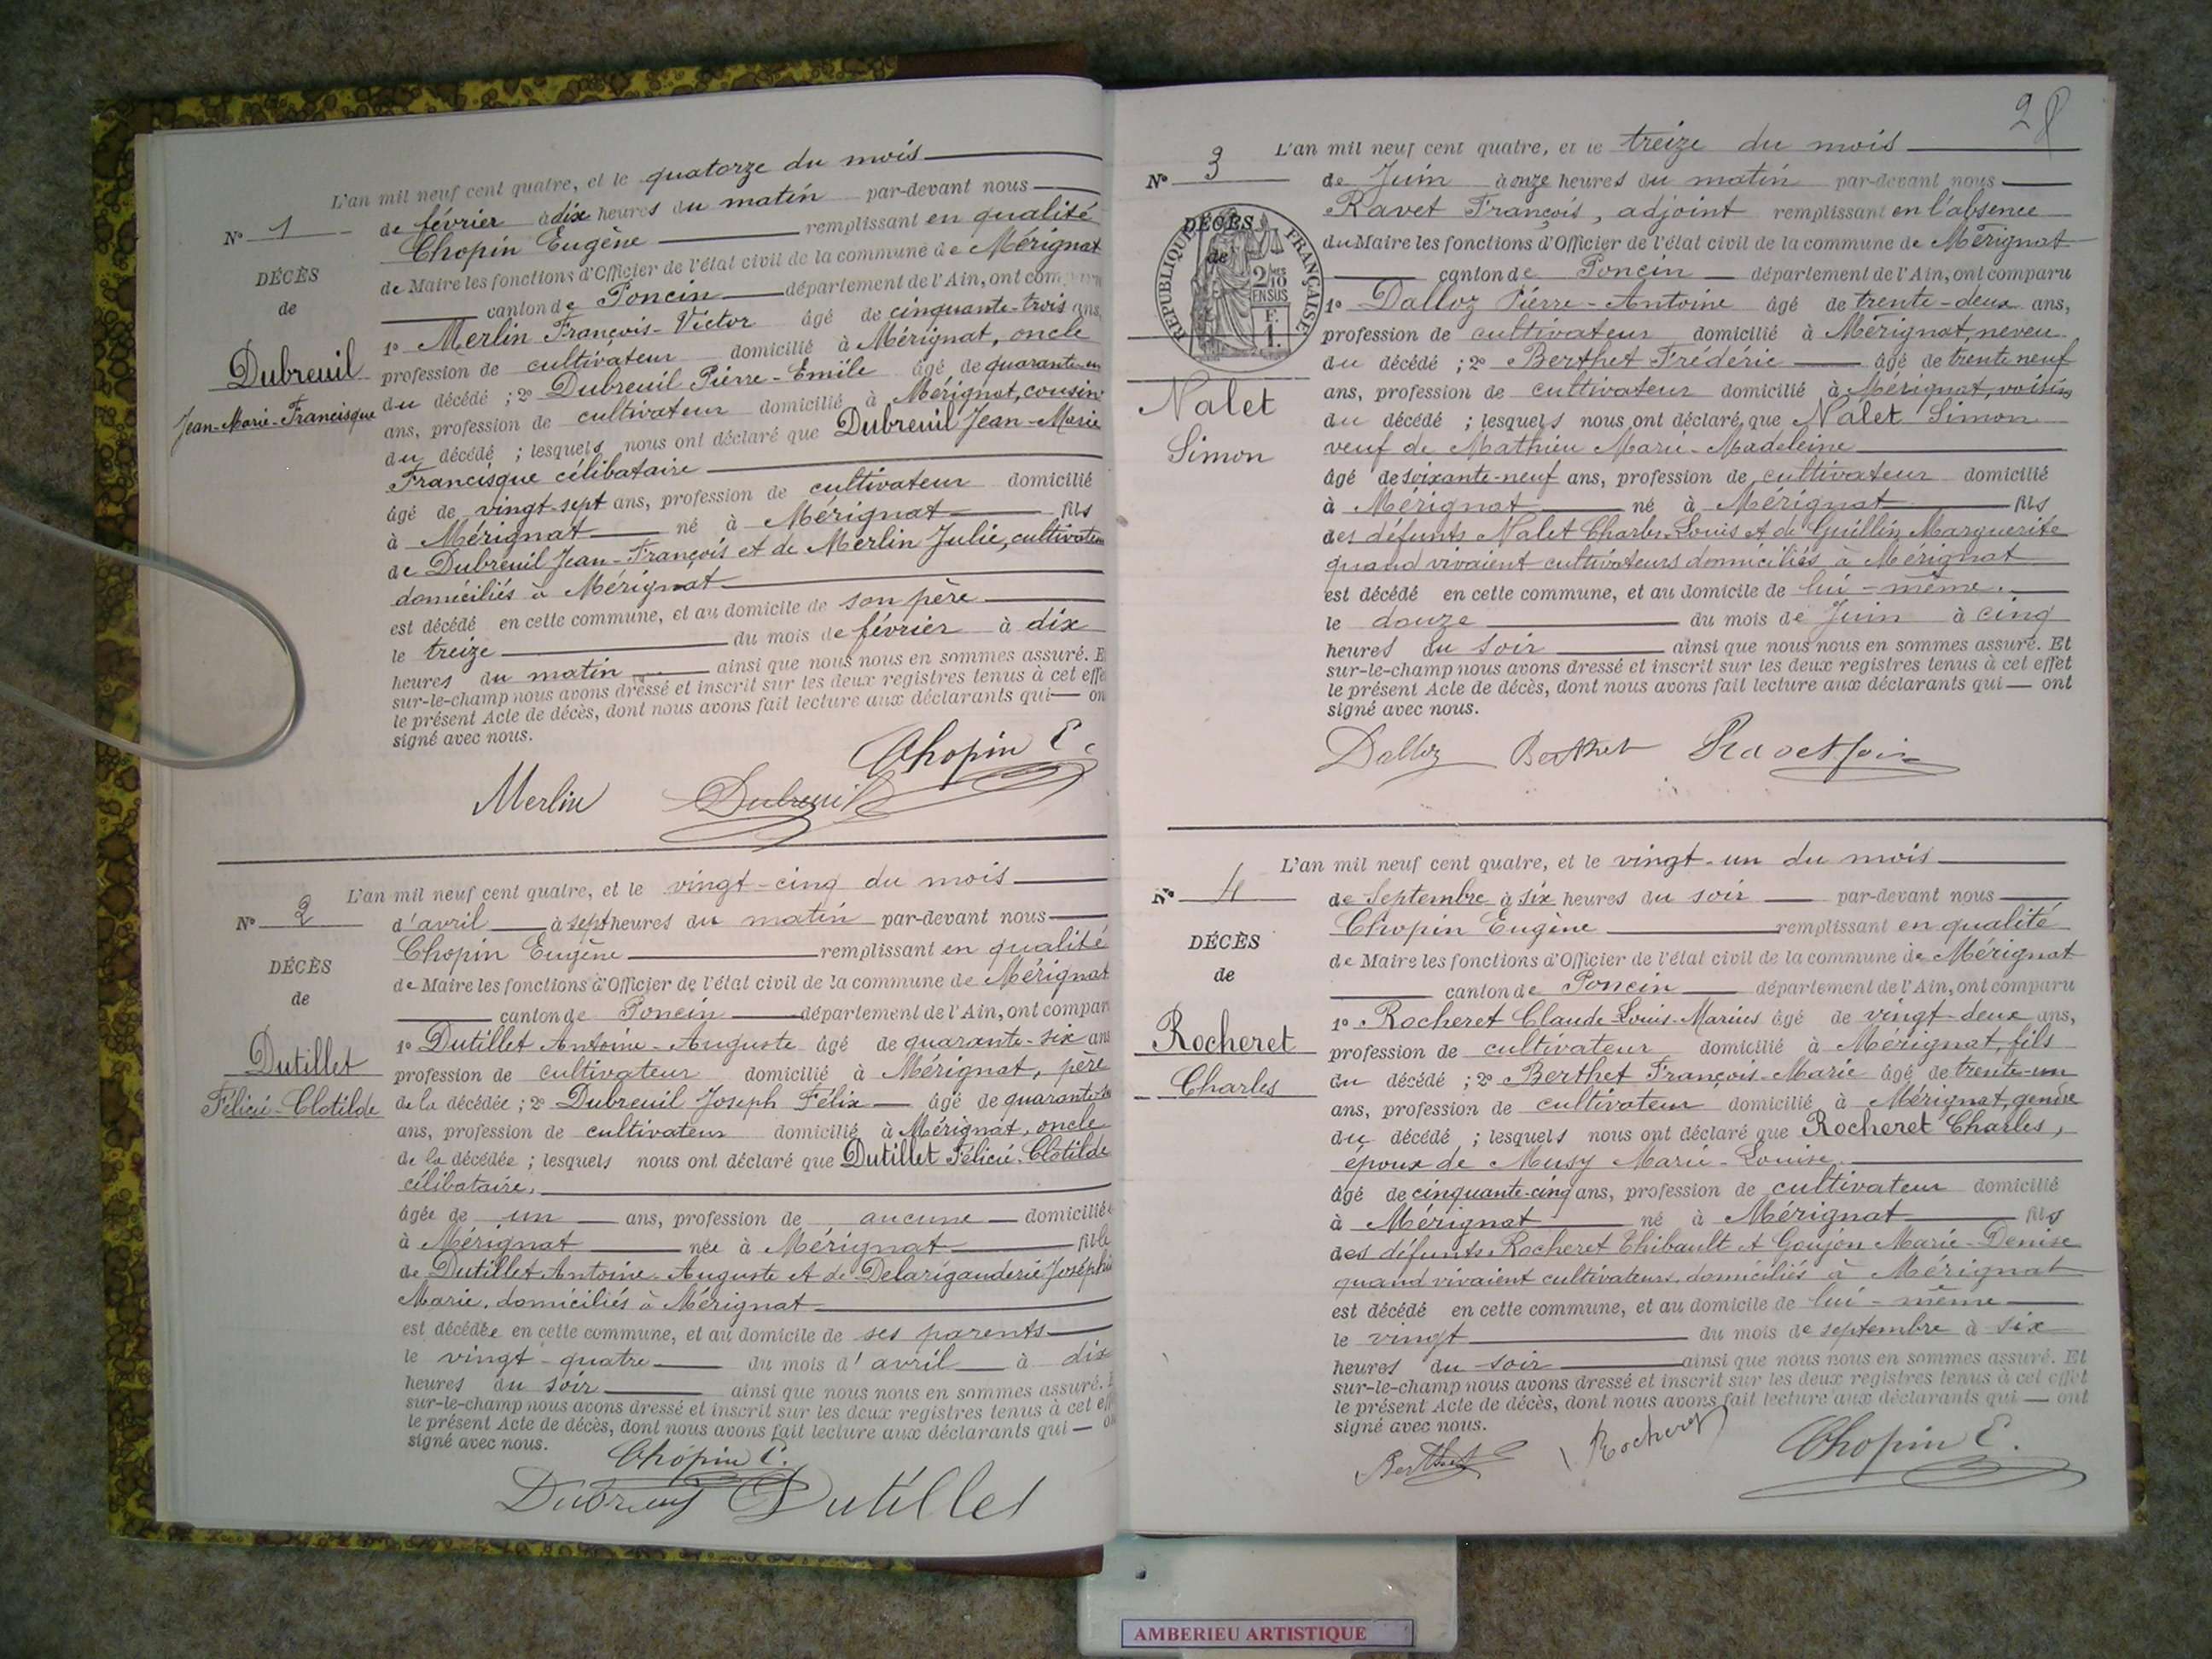 L'an mil neuf cent quatre, et le quatorze du mois
N° 1
de février à dix heures du matin par-devant nous
Chopin Eugène remplissant en qualité
de Maire les fonctions d'Officier de l'état civil de la commune de Mérignat
DÉCÈS
de
canton de Poncin département de l'Ain, ont comparu
1° Merlin François-Victor âgé de cinquante-trois ans,
profession de cultivateur domicilié à Mérignat, oncle
Dubreuil
Jean-Marie-Francisque
du décédé ; 2° Dubreuil Pierre-Emile âgé de quarante-un
ans, profession de cultivateur domicilié à Mérignat, cousin
du décédé ; lesquels nous ont déclaré que Dubreuil Jean-Marie
Francisque célibataire
âgé de vingt-sept ans, profession de cultivateur domicilié
à Mérignat né à Mérignat fils
de Dubreuil Jean-François et de Merlin Julie, cultivateurs
domiciliés à Mérignat
est décédé en cette commune, et au domicile de son père
le treize du mois de février à dix
heures du matin ainsi que nous nous en sommes assuré. E
sur-le-champ nous avons dressé et inscrit sur les deux registres tenus à cet effe
le présent Acte de décès, dont nous avons fait lecture aux déclarants qui on
signé avec nous.
Chopin E.
Merlin Dubreuil
L'an mil neuf cent quatre, et le vingt-cinq du mois
N° 2
d'avril à sept heures du matin par-devant nous
Chopin Eugène remplissant en qualité
DÉCÈS
de
de Maire les fonctions d'Officier de l'état civil de la commune de Mérignat
canton de Poncin département de l'Ain, ont compar
1° Dutillet Antoine-Auguste âgé de quarante-six ans
Dutillet
Félicie-Clotilde
profession de cultivateur domicilié à Mérignat, père
de la décédée ; 2° Dubreuil Joseph Félix âgé de
ans, profession de cultivateur domicilié à Mérignat, oncle
de la décédée ; lesquels nous ont déclaré que Dutillet Félicie-Clotilde
célibataire,
âgée de un ans, profession de aucune domiciliée
à Mérignat née à Mérignat fille
de Dutillet Antoine-Auguste et de Delarigauderie Joséphi
Marie, domiciliés à Mérignat
est décédée en cette commune, et au domicile de ses parents
le vingt-quatre du mois d'avril à dix
heures du soir ainsi que nous nous en sommes assuré. E
sur-le-champ nous avons dressé et inscrit sur les deux registres tenus à cet eff
le présent Acte de décès, dont nous avons fait lecture aux déclarants qui on
signé avec nous.
Chopin E.
Dubreuil Dutillet
28
L'an mil neuf cent quatre, et le treize du mois
N° 3
de Juin à onze heures du matin par-devant nous
Ravet François, adjoint remplissant en l'absence
DÉCÈS
de
RÉPUBLIQUE FRANÇAISE
2/10
EN SUS
F.
1.
du Maire les fonctions d'Officier de l'état civil de la commune de Mérignat
canton de Poncin département de l'Ain, ont comparu
1° Dalloz Pierre-Antoine âgé de trente-deux ans,
profession de cultivateur domicilié à Mérignat, neveu
du décédé ; 2° Berthet Frédéric âgé de trente neuf
Nalet
Simon
ans, profession de cultivateur domicilié à Mérignat, voisin
du décédé ; lesquels nous ont déclaré que Nalet Simon
veuf de Mathieu Marie-Madeleine
âgé de soixante-neuf ans, profession de cultivateur domicilié
à Mérignat né à Mérignat fils
des défunts Nalet Charles Louis et de Guillin Marguerite
quand vivaient cultivateurs domiciliés à Mérignat
est décédé en cette commune, et au domicile de lui-même.
le douze du mois de Juin à cinq
heures du soir ainsi que nous nous en sommes assuré. Et
sur-le-champ nous avons dressé et inscrit sur les deux registres tenus à cet effet
le présent Acte de décès, dont nous avons fait lecture aux déclarants qui ont
signé avec nous.
Dalloz Berthet Ravet
L'an mil neuf cent quatre, et le vingt-un du mois
N° 4
de Septembre à six heures du soir par-devant nous
Chopin Eugène remplissant en qualité
DÉCÈS
de
de Maire les fonctions d'Officier de l'état civil de la commune de Mérignat
canton de Poncin département de l'Ain, ont comparu
1° Rocheret Claude Louis-Marius âgé de vingt-deux ans,
Rocheret
Charles
profession de cultivateur domicilié à Mérignat, fils
du décédé ; 2° Berthet François-Marie âgé de trente-un
ans, profession de cultivateur domicilié à Mérignat, gendre
du décédé ; lesquels nous ont déclaré que Rocheret Charles,
époux de Musy Marie-Louise.
âgé de cinquante-cinq ans, profession de cultivateur domicilié
à Mérignat né à Mérignat fils
des défunts Rocheret Thibault et Goujon Marie-Denise
quand vivaient cultivateurs domiciliés à Mérignat
est décédé en cette commune, et au domicile de lui-même
le vingt du mois de septembre à six
heures du soir ainsi que nous nous en sommes assuré. Et
sur-le-champ nous avons dressé et inscrit sur les deux registres tenus à cet effet
le présent Acte de décès, dont nous avons fait lecture aux déclarants qui ont
signé avec nous.
Berthet Rocheret Chopin E.
AMBERIEU ARTISTIQUE